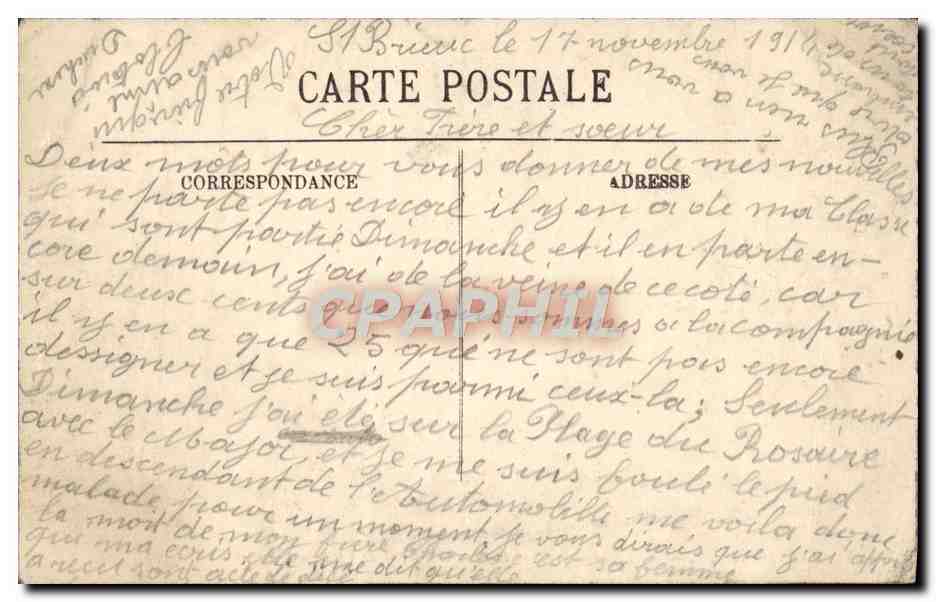 St Brieuc le 17 novembre 1914
CARTE POSTALE
Chèr Frère et soeur
Deux mots pour vous donner de mes nouvelles
CORRESPONDANCE
ADRESSE
Je ne parte pas encore il y en a de ma Classe
qui sont partie Dimanche et il en parte en-
core demain, j'ai de la veine de ce coté, car
sur deux cents que nous sommes a la compagnie
CPAPHIL
il y en a que 25 qui ne sont pas encore
dessigner et je suis parmi ceux-la; Seulement
Dimanche j'ai été sur la Plage du Rosaire
avec le Major, et je me suis foulé le pied
en descendant de l'Automobille me voila donc
malade pour un moment, je vous dirais que j'ai appris
la mort de mon frère c'est sa femme
que ma ecris elle me dit qu'elle
a reçut sont acte de
Votre frère qui
vous aime